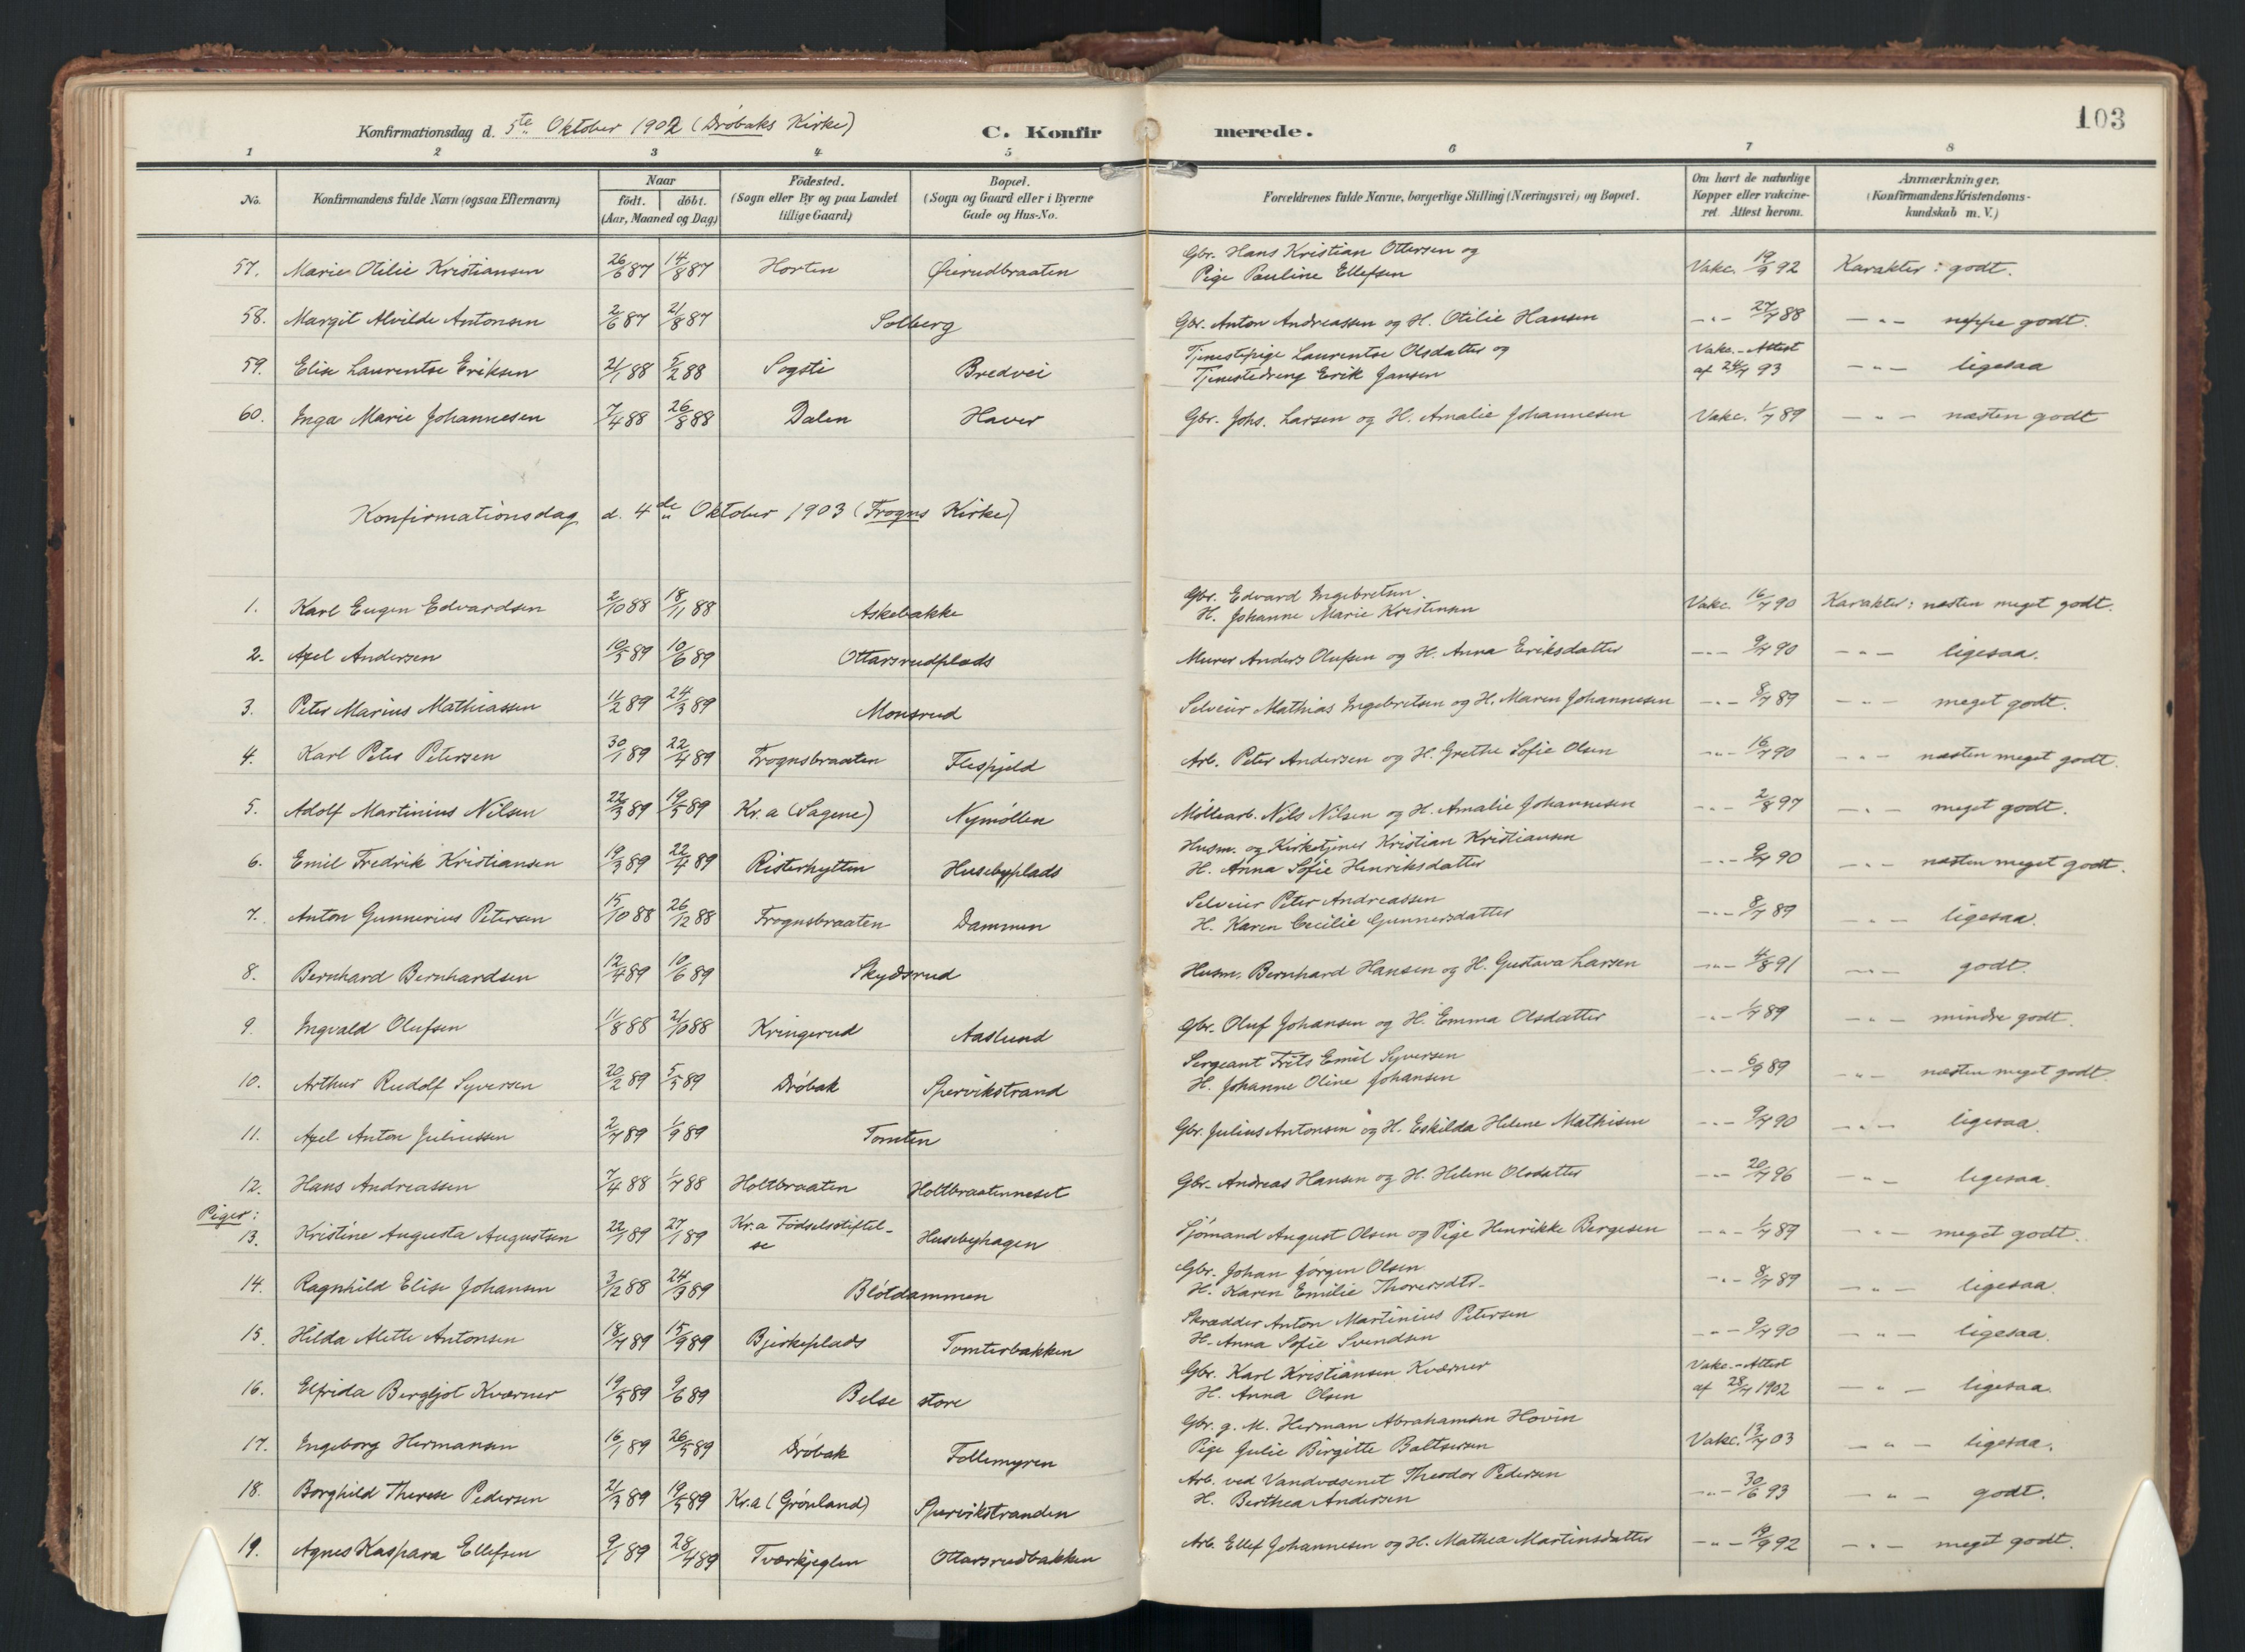 103
Konfirmationsdag d. 5te Oktober 1902 (Drøbaks Kirke) C. Konfirmerede.
1 2 3 4 5 6 7 8
No. Konfirmandens fulde Navn (ogsaa Efternavn) Naar født. døbt. (Aar, Maaned og Dag) Fødested. (Sogn eller By og paa Landet tillige Gaard) Bopæl. (Sogn og Gaard eller i Byerne Gade og Hus-No. Forældrenes fulde Navne, borgerlige Stilling (Næringsvei) og Bopæl. Om havt de naturlige Kopper eller vakcineret. Attest herom. Anmærkninger. (Konfirmandens Kristendomskundskab m. V.)
57. Marie Otilie Kristiansen 26/6 87 14/8 87 Horten Øierudbraaten Gbr. Hans Kristian Ottersen og Pige Pauline Ellefsen Vakc. 19/9 92 Karakter: godt.
58. Margit Alvilde Antonsen 2/6 87 21/8 87 Solberg Gbr. Anton Andreassen og H. Otilie Hansen -"- 27/7 88 -"- neppe godt.
59. Elise Laurentse Eriksen 21/1 88 5/2 88 Sogsti Bredvei Tjenestepige Laurentse Olsdatter og Tjenestedreng Erik Jansen Vakc.-Attest af 24/7 93 -"- ligesaa
60. Inga Marie Johannesen 7/4 88 26/8 88 Dalen Haver Gbr. Johs. Larsen og H. Amalie Johannesen Vakc. 1/7 89 -"- næsten godt
Konfirmationsdag d. 4de Oktober 1903 (Frogns Kirke)
1. Karl Eugen Edvardsen 2/10 88 18/11 88 Askebakke Gbr. Edvard Ingebretsen. H. Johanne Marie Kristensen Vakc. 16/7 90 Karakter: næsten meget godt.
2. Axel Andersen 10/5 89 10/6 89 Ottarsrudplads Murer Anders Olufsen og H. Anna Eriksdatter -"- 9/7 90 -"- ligesaa.
3. Peter Marius Mathiassen 11/2 89 24/3 89 Monsrud Selveier Mathias Ingebretsen og H. Maren Johannesen -"- 8/7 89 -"- meget godt.
4. Karl Peter Petersen 30/1 89 22/4 89 Frognsbraaten Flespjeld Arb. Peter Andersen og H. Grethe Sofie Olsen -"- 16/7 90 -"- næsten meget godt.
5. Adolf Martinius Nilsen 22/3 89 19/5 89 Kr.a (Sagene) Nymøllen Møllearb. Nils Nilsen og H. Amalie Johannesen -"- 2/8 97 -"- meget godt.
6. Emil Fredrik Kristiansen 19/3 89 22/4 89 Risterhytten Husebyplads Husm. og Kirketjener Kristian Kristiansen H. Anna Sofie Henriksdatter -"- 9/7 90 -"- næsten meget godt.
7. Anton Gunnerius Petersen 15/10 88 26/12 88 Frognsbraaten Dammen Selveier Peter Andreassen H. Karen Cecilie Gunnersdatter -"- 8/7 89 -"- ligesaa.
8. Bernhard Bernhardsen 12/4 89 10/6 89 Skydsrud Husm. Bernhard Hansen og H. Gustava Larsen -"- 4/8 91 -"- godt.
9. Ingvald Olufsen 11/8 88 21/10 88 Kringerud Aaslund Gbr. Oluf Johansen og H. Emma Olsdatter -"- 1/7 89 -"- mindre godt.
10. Arthur Rudolf Syversen 20/2 89 5/5 89 Drøbak Spervikstrand Sergeant Frits Emil Syversen H. Johanne Oline Johansen -"- 6/9 89 -"- næsten meget godt.
11. Axel Anton Juliussen 2/7 89 1/9 89 Tomten Gbr. Julius Antonsen og H. Eskilda Helene Mathisen -"- 9/7 90 -"- ligesaa.
12. Hans Andreassen 7/4 88 1/7 88 Holtbraaten Holtbraatenneset Gbr. Andreas Hansen og H. Helene Olsdatter -"- 20/7 96 -"- ligesaa.
Piger:
13. Kristine Augusta Augustsen 22/1 89 27/1 89 Kr.a Fødselsstiftelse Husebyhagen Sjømand August Olsen og Pige Henrikke Bergesen -"- 1/7 89 -"- meget godt.
14. Ragnhild Elise Johansen 3/12 88 24/3 89 Bløtdammen Gbr. Johan Jørgen Olsen H. Karen Emilie Thorersdtr. -"- 8/7 89 -"- ligesaa.
15. Hilda Alette Antonsen 18/7 89 15/9 89 Bjerkeplads Tomterbakken Skrædder Anton Martinius Petersen H. Anna Sofie Svendsen -"- 9/7 90 -"- ligesaa.
16. Elfrida Bergljot Kværner 19/5 89 9/6 89 Belse store Gbr. Karl Kristiansen Kværner H. Anna Olsen Vakc.-Attest af 28/7 1902 -"- ligesaa.
17. Ingeborg Hermansen 16/1 89 26/5 89 Drøbak Follemyren Gbr. g. M. Herman Abrahamsen Hovin Pige Julie Birgitte Baltsersen Vakc. 13/7 03 -"- ligesaa.
18. Borghild Therese Pedersen 21/3 89 19/5 89 Kr.a (Grønland) Spervikstranden Arb. ved Vandvæsenet Theodor Pedersen H. Berthea Andersen -"- 30/6 93 -"- godt.
19. Agnes Kaspara Ellefsen 9/1 89 28/4 89 Tværkjeglen Ottarsrudbakken Arb. Ellef Johannesen og H. Mathea Martinsdatter -"- 19/9 92 -"- meget godt.